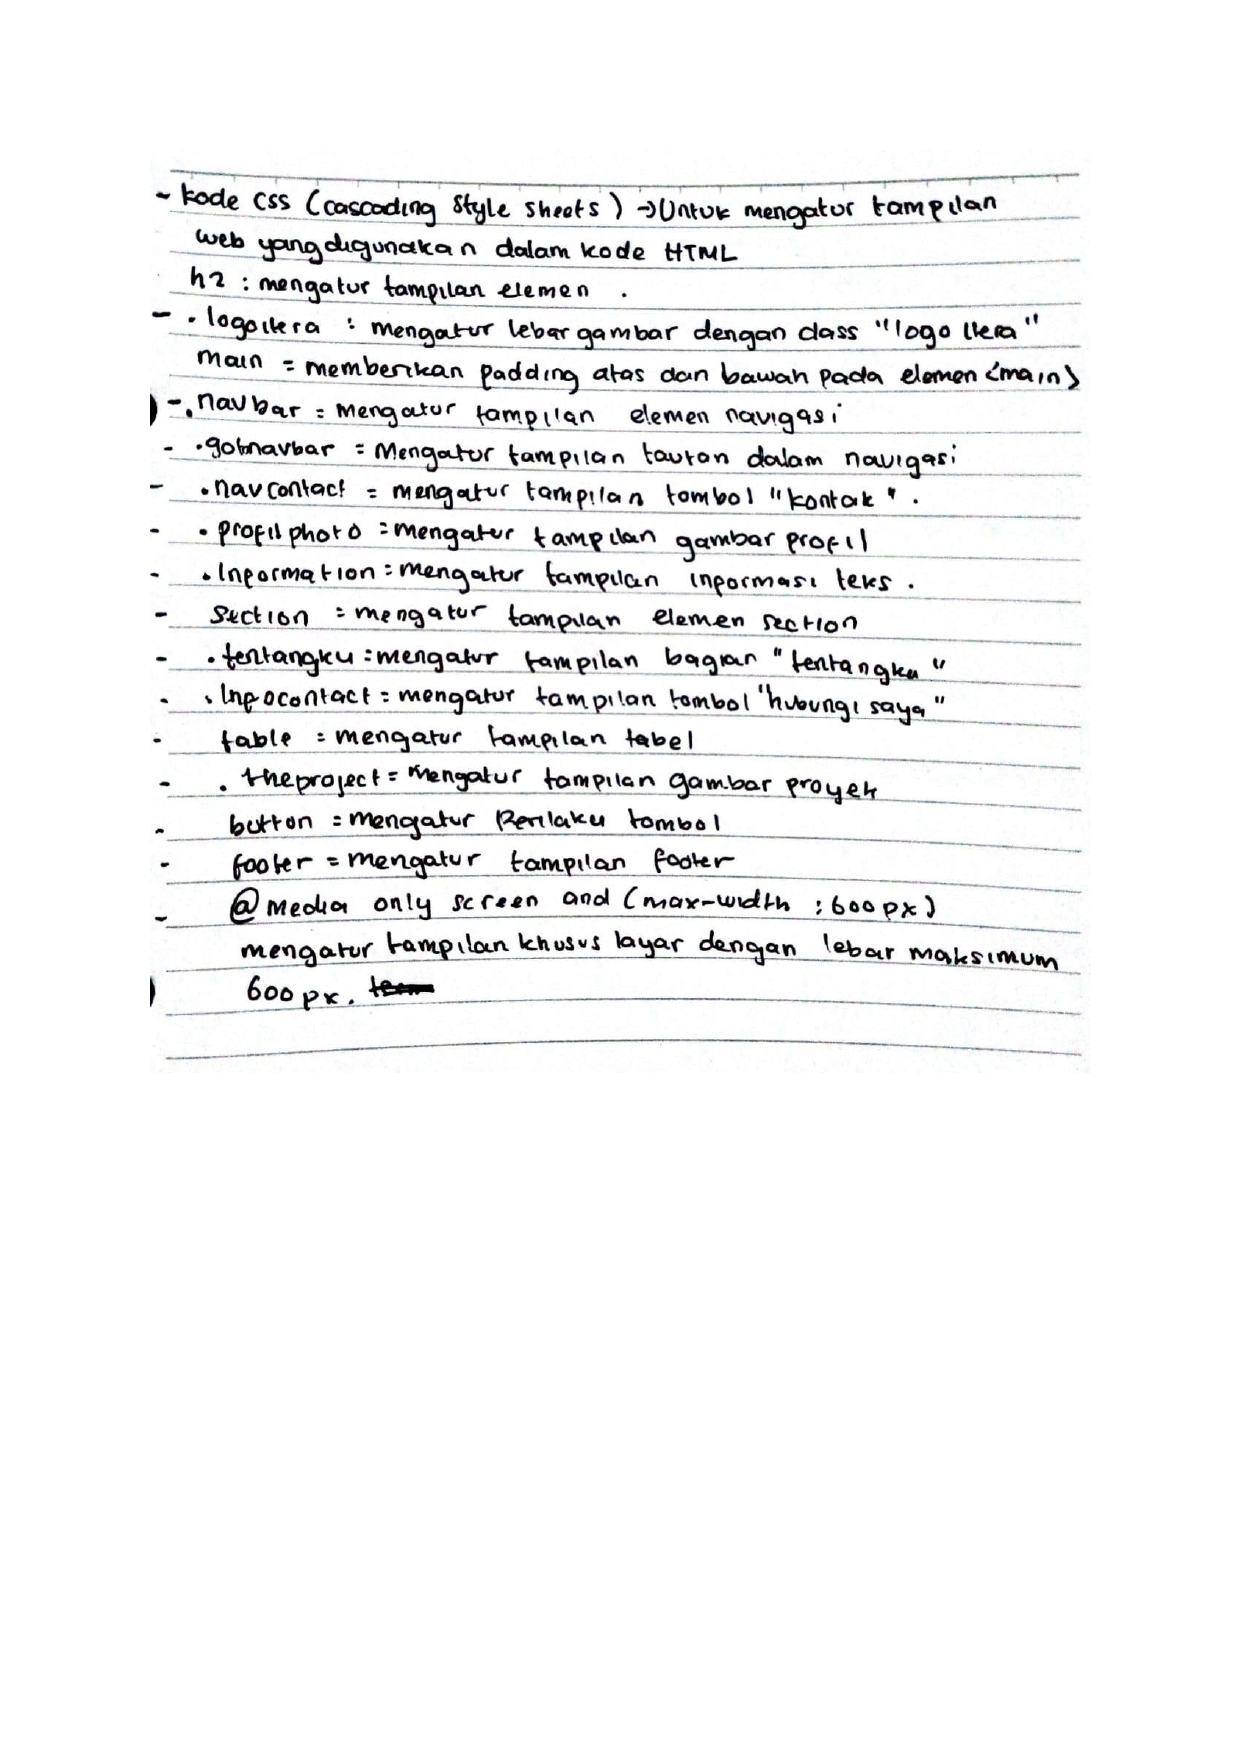 - kode css (cascading style sheets) → Untuk mengatur tampilan
web yang digunakan dalam kode HTML
h2 : mengatur tampilan elemen .
- . logoitera : mengatur lebar gambar dengan class "logo itera"
main = memberikan padding atas dan bawah pada elemen <main>
- . navbar = Mengatur tampilan elemen navigasi
- . = Mengatur tampilan tautan dalam navigasi
- . navcontact = mengatur tampilan tombol "kontak" .
- . profilphoto = mengatur tampilan gambar profil
- . Information = mengatur tampilan informasi teks .
- Section = mengatur tampilan elemen section
- . tentangku = mengatur tampilan bagian "tentangku"
- . Infocontact = mengatur tampilan tombol "hubungi saya"
- table = mengatur tampilan tabel
- . theproject = Mengatur tampilan gambar proyek
- button = mengatur Perilaku tombol
- footer = mengatur tampilan footer
- @media only screen and (max-width : 600px)
mengatur tampilan khusus layar dengan lebar maksimum
600 px.